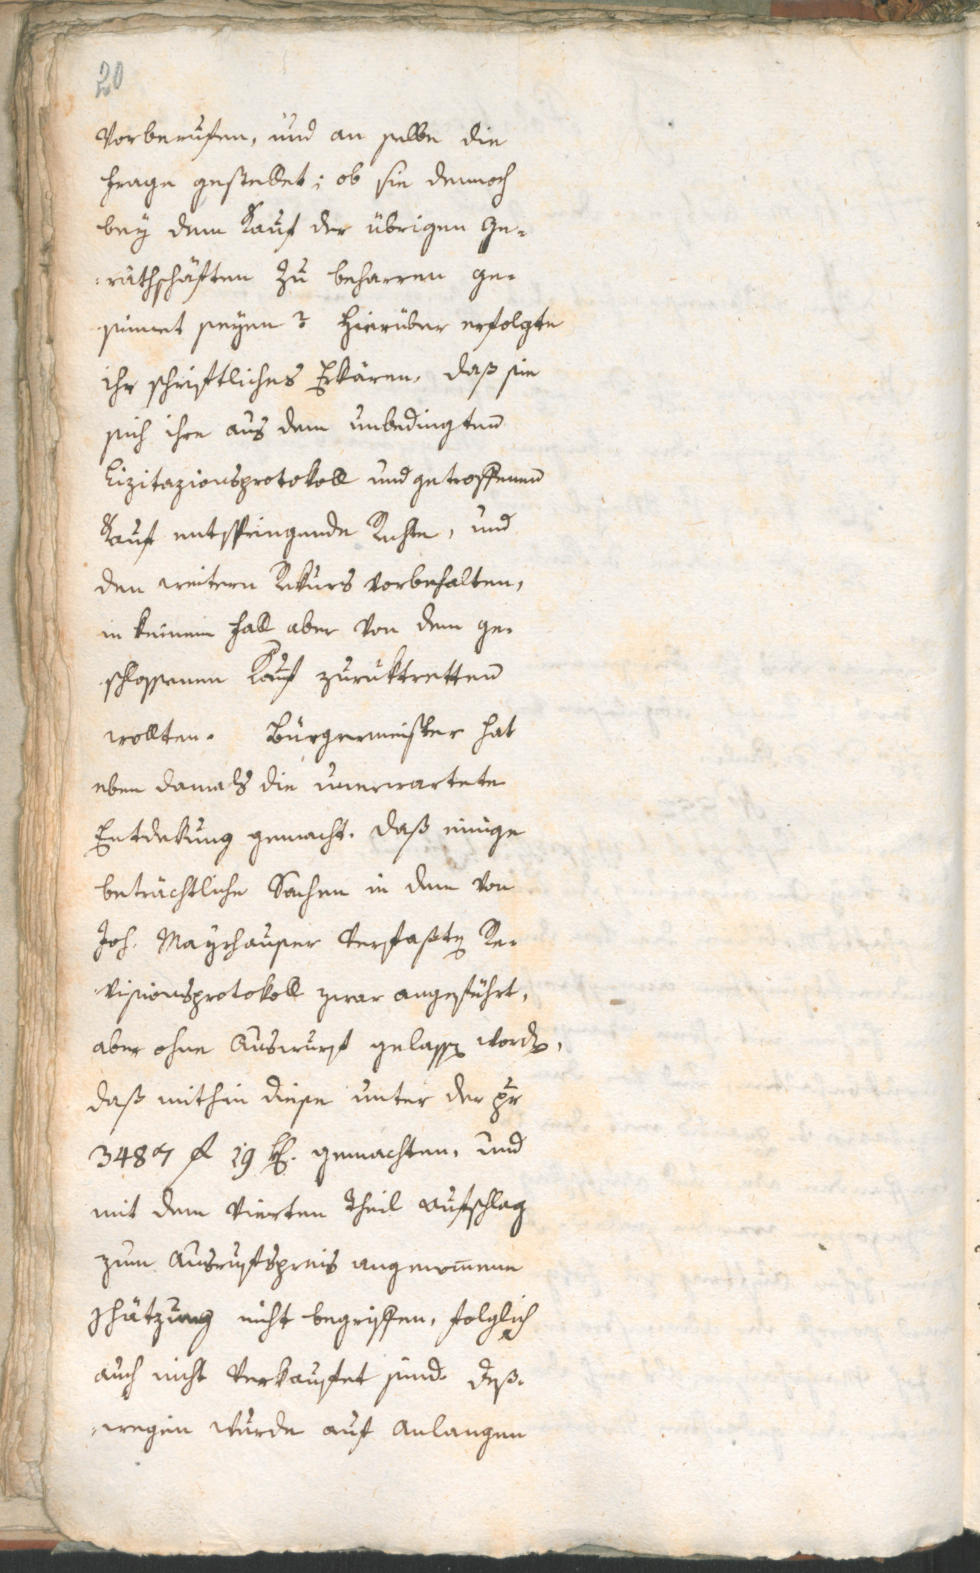 20
vorberufen, und an selbe die
Frage gestellet; ob sie dennoch
bey dem Kauf der übrigen Ge-
räthschäften zu beharren ge-
sinnet seyen? Hierüber erfolgte
ihr schriftliches Erkären, daß sie
sich ihre aus dem unbedingten
Lizitazionsprotokoll und getroffenen
Kauf entspringende Rechte, und
den weitern Rekurs vorbehalten,
in keinem Fall aber von dem ge-
schlossenen Kauf zurüktretten
wollten. Bürgermeister hat
eben damals die unerwartete
Entdekung gemacht. daß einige
beträchtliche Sachen in dem von
Joh. Mayrhauser verfaßten Re-
visionsprotokoll zwar angeführt,
aber ohne Auswurf gelassen worden,
daß mithin diese unter der pr
3487 f 19 kr. gemachten, und
mit dem vierten Theil aufschlag
zum Ausrufspreis angenommene
Schätzung nicht begriffen, folglich
auch nicht verkauffet sind. deß-
wegen wurde auf Anlangen